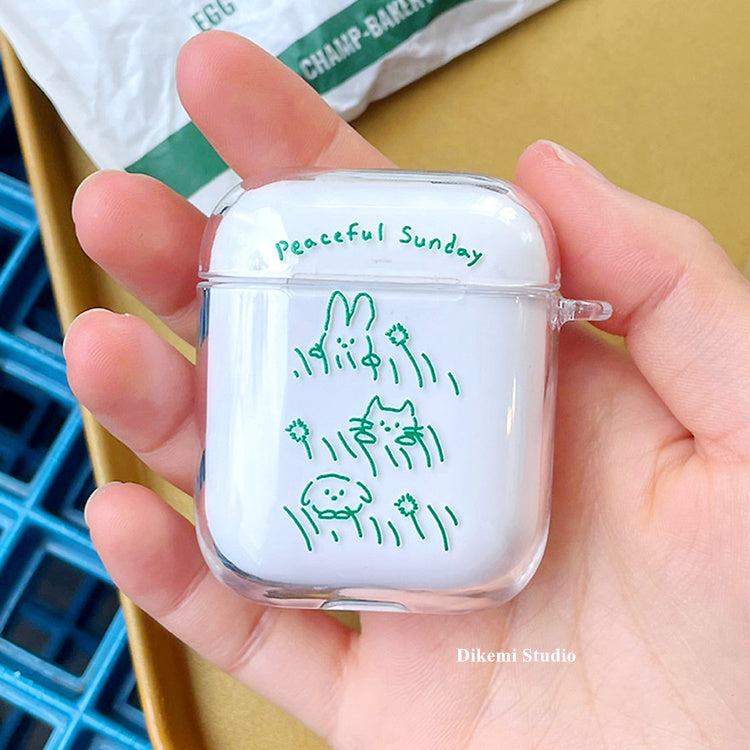 EGG
CHAMP-BAKERY
Peaceful Sunday
Dikemi Studio